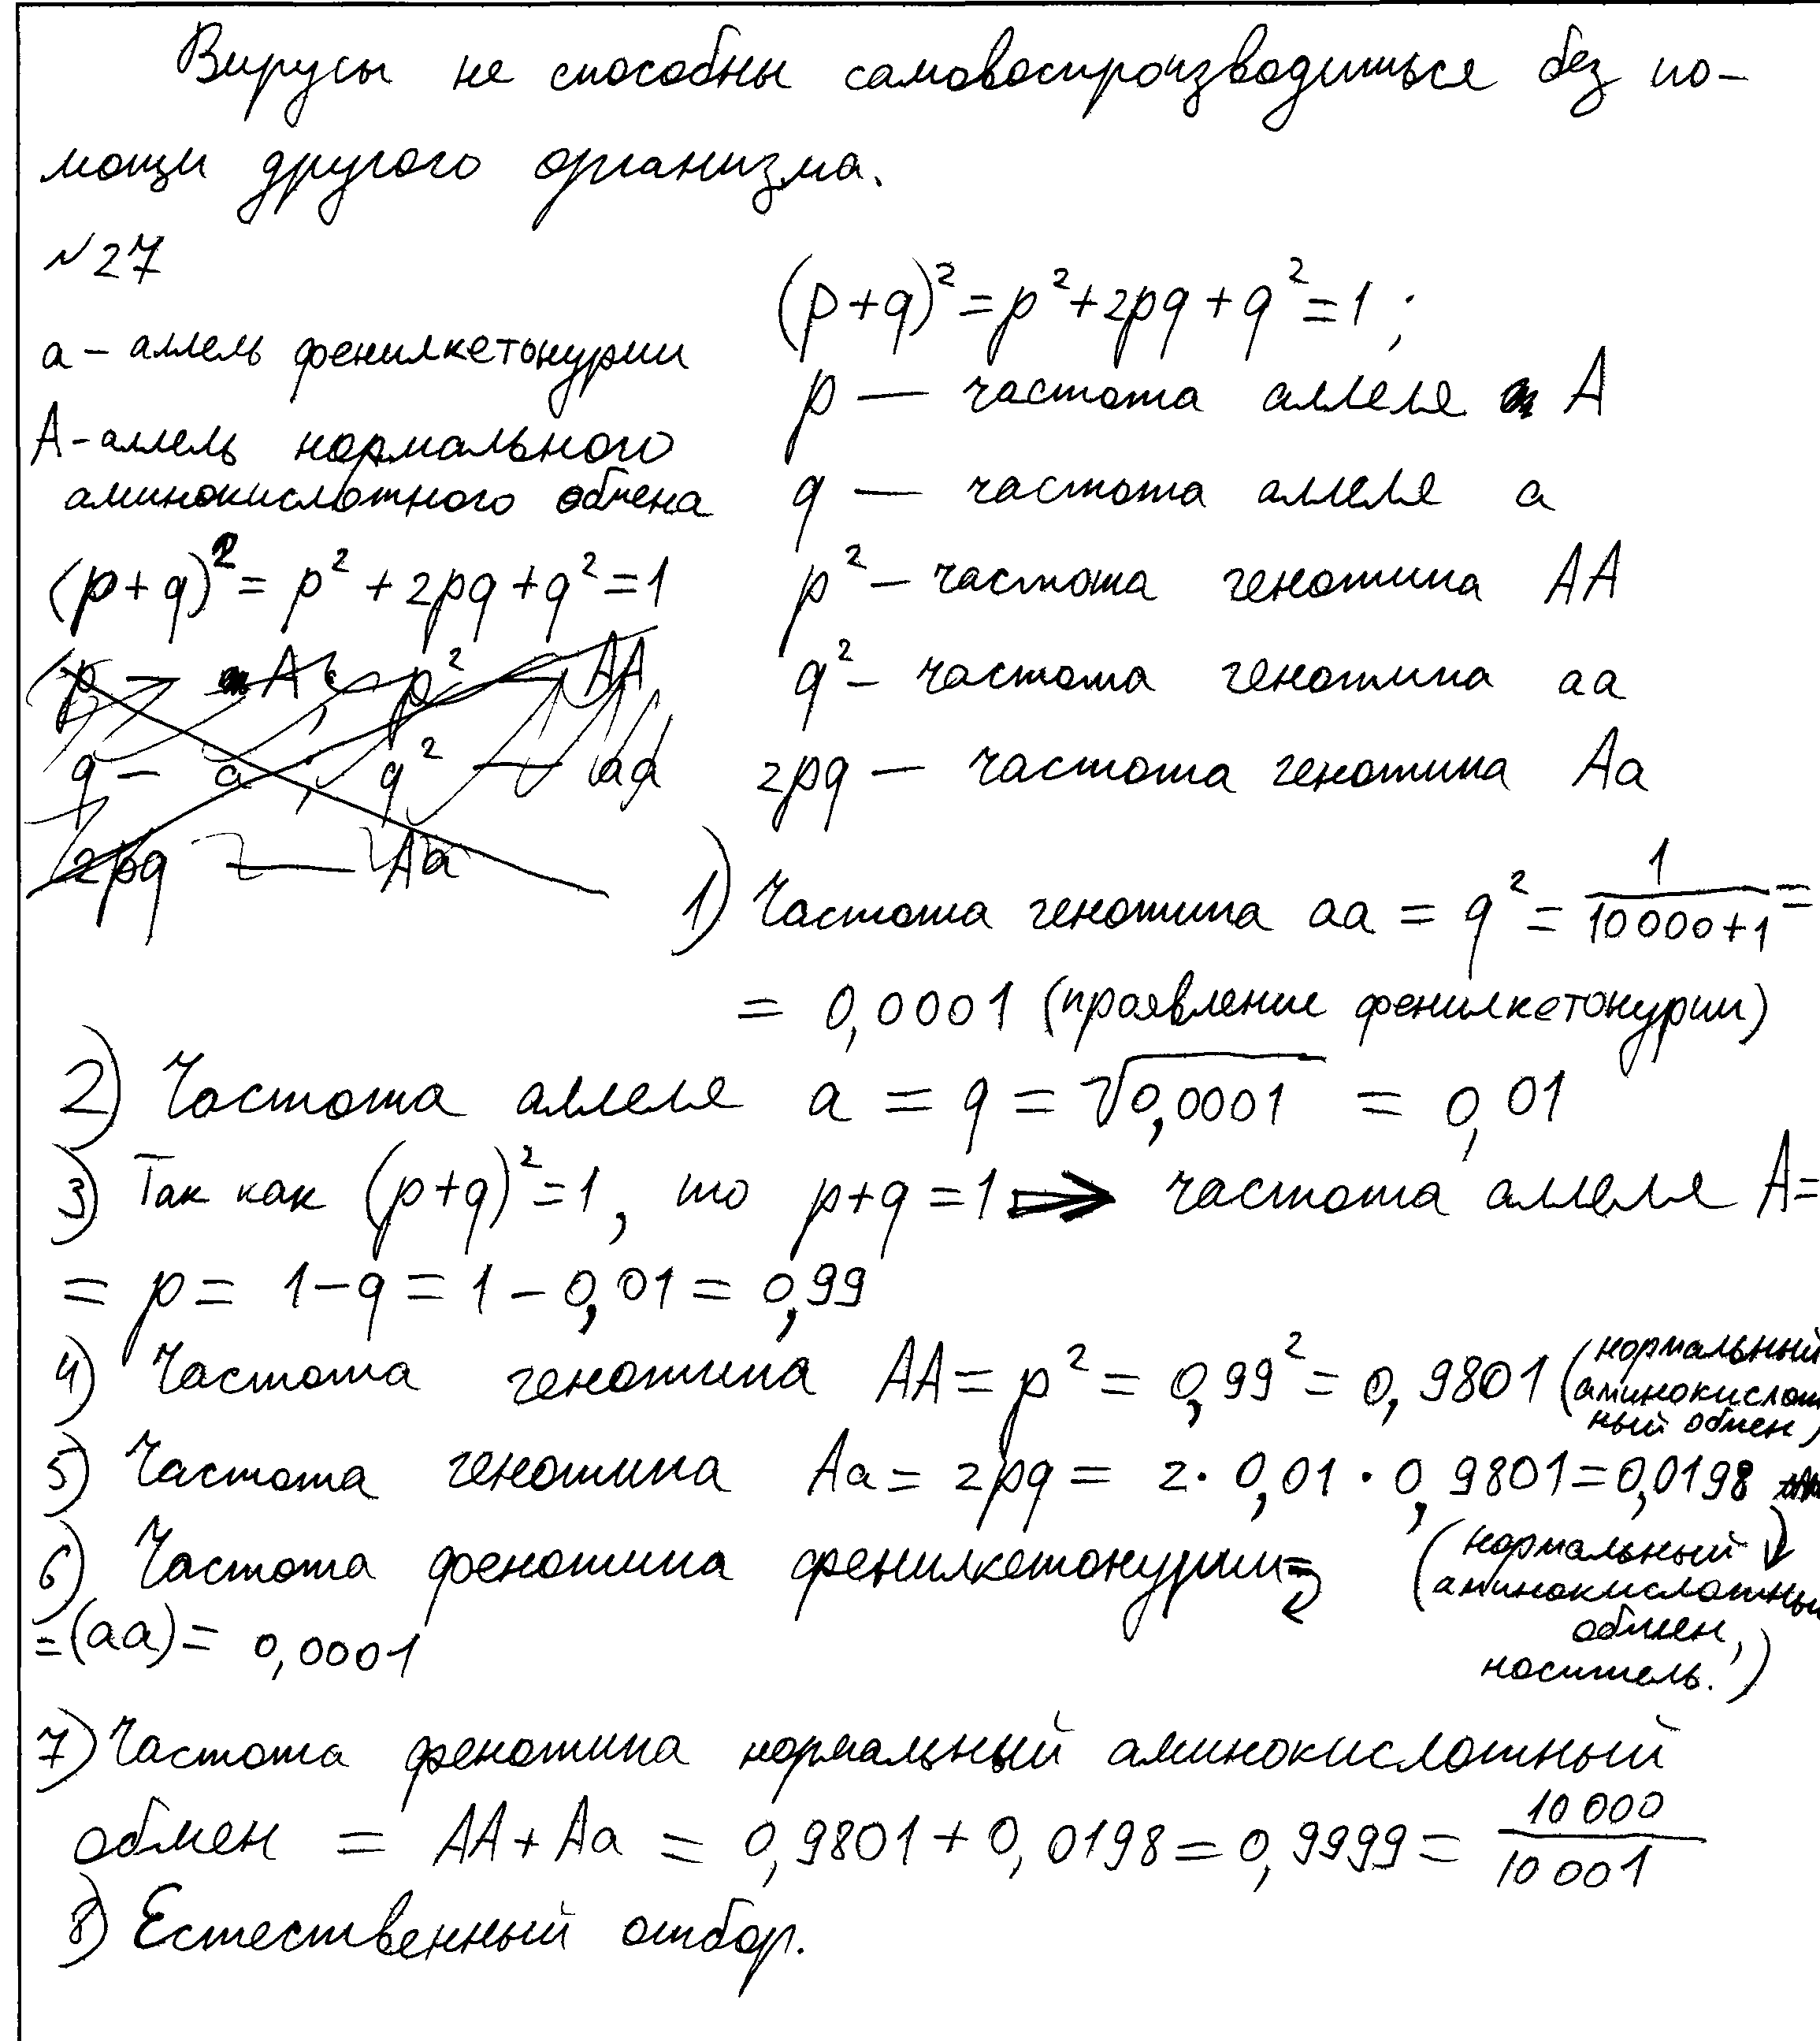 Вирусы не способны самовоспроизводиться без по-
мощи другого организма.
№27
a - аллель фенилкетонурии
A - аллель нормального
аминокислотного обмена
(p+q)² = p² + 2pq + q² = 1
p — A; p² — AA
q — a; q² — aa
2pq — Aa
(p+q)² = p² + 2pq + q² = 1;
p — частота аллеля A
q — частота аллеля a
p² — частота генотипа AA
q² — частота генотипа aa
2pq — частота генотипа Aa
1) Частота генотипа aa = q² = 1/(10000+1) =
= 0,0001 (проявление фенилкетонурии)
2) Частота аллеля a = q = √0,0001 = 0,01
3) Так как (p+q)² = 1, то p+q = 1 ⇒ частота аллеля A =
= p = 1-q = 1 - 0,01 = 0,99
4) Частота генотипа AA = p² = 0,99² = 0,9801 (нормальный
аминокислот
ный обмен)
5) Частота генотипа Aa = 2pq = 2 · 0,01 · 0,9801 = 0,0198
(нормальный
аминокислотный
обмен,
носитель.)
6) Частота фенотипа фенилкетонурии =
= (aa) = 0,0001
7) Частота фенотипа нормальный аминокислотный
обмен = AA + Aa = 0,9801 + 0,0198 = 0,9999 = 10000/10001
8) Естественный отбор.